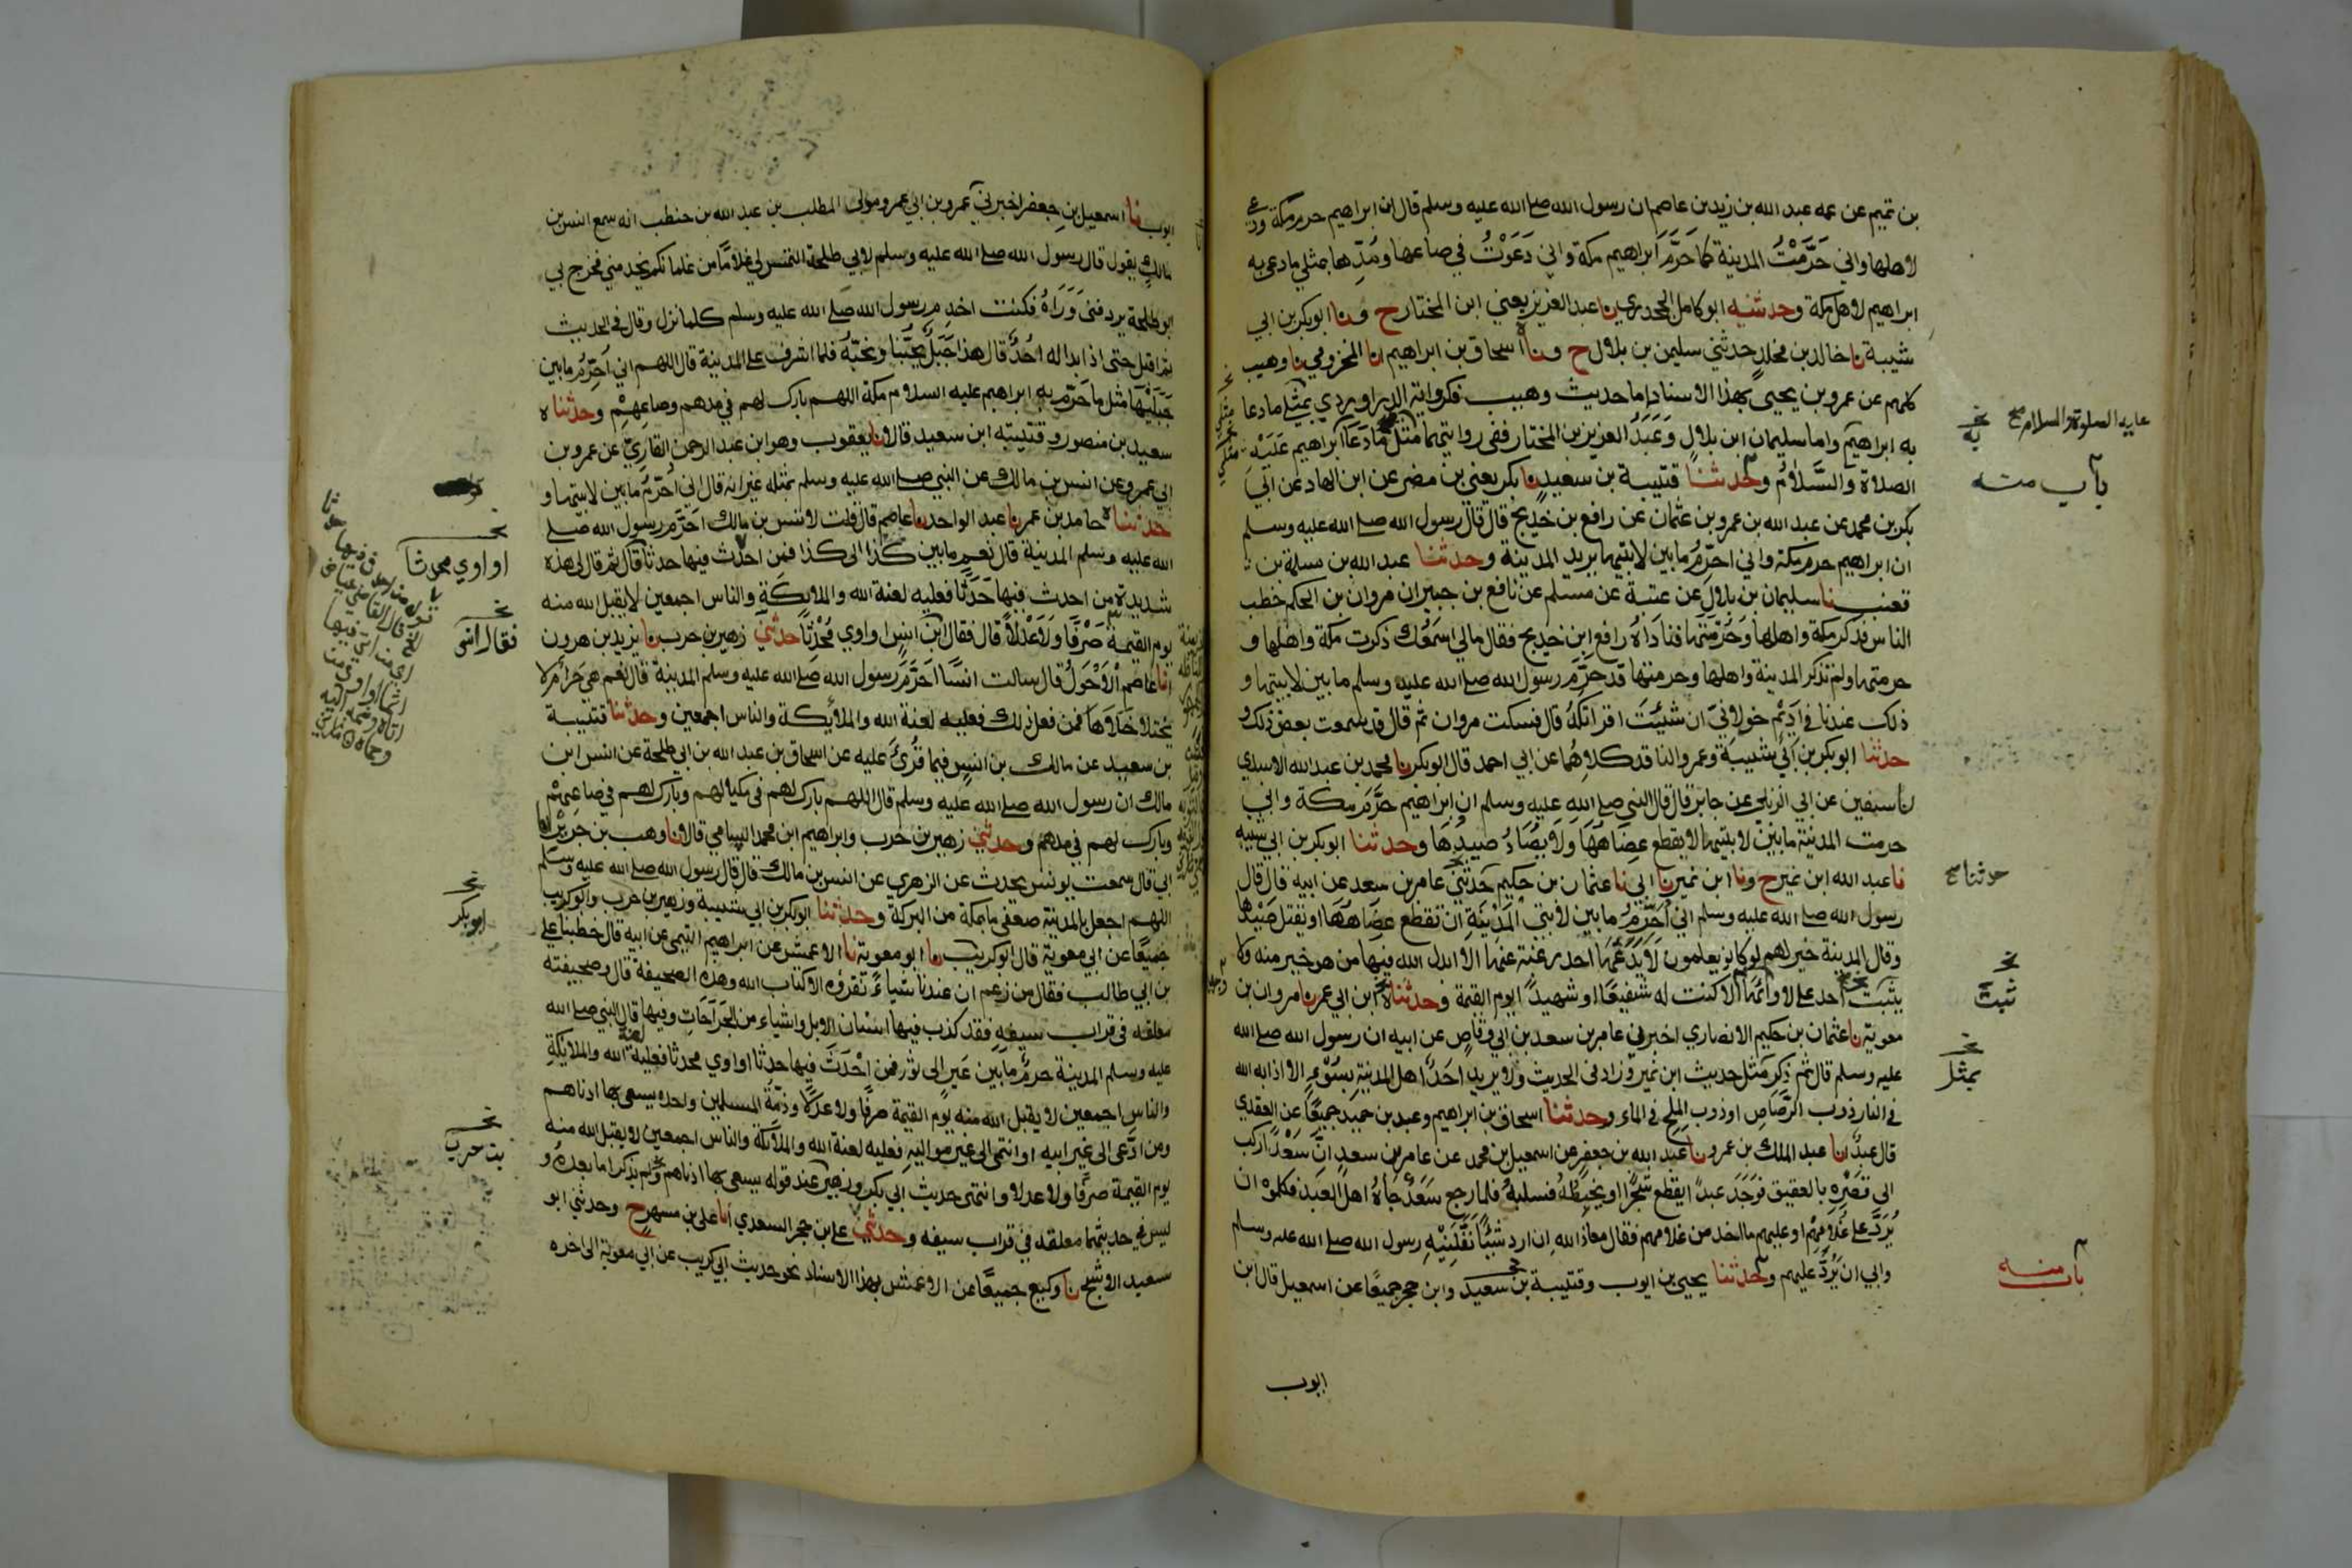 بن تميم عن عمه عبد الله بن زيد بن عاصم ان رسول الله صلى الله عليه وسلم قال ان ابراهيم حرم مكة ودعى
لاهلها واني حَرَّمْتُ المدينة كما حَرَّمَ ابراهيم مكة واني دَعَوْتُ في صاعها ومُدِّها بمثلي ما دعى به
ابراهيم لاهل مكة وحدثنيه ابو كامل الجحدري نا عبد العزيز يعني ابن المختار ح ونا ابو بكر بن ابي
شيبة نا خالد بن مخلد حدثني سليمن بن بلال ح ونا اسحاق بن ابراهيم انا المخزومي نا وهيب
كلهم عن عمرو بن يحيى بهذا الاسناد اما حديث وهيب فكرواية الدراوردي بمثلي ما دعا
به ابراهيم واما سليمان ابن بلال وَعَبْدُ العزيز بن المختار ففي روايتهما مثل مَا دَعَا ابراهيم عَلَيْه
الصلاة والسَّلامُ وحدثنا قتيبة بن سعيد نا بكر يعني بن مضر عن ابن الهاد عن ابي
بكر بن محمد عن عبد الله بن عمرو بن عثمان عن رافع بن خديج قال قال رسول الله صلى الله عليه وسلم
ان ابراهيم حرم مكة واني احرّمُ ما بين لابتيها يريد المدينة وحدثنا عبد الله بن مسلمة بن
قعنب نا سليمان بن بلال عن عتبة عن مسلم عن نافع بن جبير ان مروان بن الحكم خطب
الناس فذكر مكة واهلها وَحُرْمَتَها فنادَاهُ رافع ابن خديج فقال مالي اسمعُك ذكرت مكة واهلها و
حرمتها ولم تذكر المدينة واهلها وحرمتها قد حرَّمَ رسول الله صلى الله عليه وسلم ما بين لابيتها و
ذلك عندنا في اَدِيْم خولانيّ ان شئتَ اقراتكهُ قال فسكت مروان ثم قال قد سمعت بعض ذلك و
حدثنا ابو بكر بن ابي شيبة وعمرو الناقد كلاهُما عن ابي احمد قال ابو بكر نا محمد بن عبد الله الاسدي
نا سفين عن ابي الزبير عن جابر قال قال النبي صلى الله عليه وسلم ان ابراهيم حرَّمَ مكة واني
حرمت المدينة ما بين لابتيها لا يقطع عِضَاهُهَا وَلا يُصَادُ صيدُهَا وحدثنا ابو بكر بن ابي شيبة
نا عبد الله ابن نمير ح ونا ابن نمير نا ابي نا عثمان بن حكيم حَدثنيْ عامر بن سعد عن ابيه قال قال
رسول الله صلى الله عليه وسلم اني اُحَرِّمُ ما بين لابتي المَدْيْنَةِ ان تقطع عِضَاهُهَا او تقتل صَيْدُها
وقال المدينة خير لهم لو كانوا يعلمون لا يَدَعُهَا احد رغبة عنها الا ابدل الله فيها من هو خير منه ولا
يثبت احد على لاوائها الا كنت له شفيعًا او شهيدً ايوم القيمة وحدثنا ابن ابي عمر نا مروان بن
معوية نا عثمان بن حكيم الانصاري اخبرني عامر بن سعد بن ابي وقاص عن ابيه ان رسول الله صلى الله
عليه وسلم قال ثم ذكر مثل حديث ابن نمير وزاد في الحديث ولا يريد احدٌ اهل المدينة بسُوْءٍ الا اذابه الله
في النار ذوب الرَّصَاصِ او ذوب الملح في الماء وحدثنا اسحاق بن ابراهيم وعبد بن حميد جميعًا عن العقدي
قال عبدٌ انا عبد الملك بن عمرو نا عبد الله بن جعفر عن اسمعيل بن محمد عن عامر بن سعد انَّ سَعْدًا ركب
الى قصْرِه بالعقيق فوَجَدَ عبدً ايقطع شجرًا او يخبطهُ فسلبهُ فلما رجع سَعْدٌ جَاءهُ اهل العبد فكلموْه ان
يُرَدَّ على غُلامِهِم او عليهم ما اخذ من غلامهم فقال معاذ الله ان ارد شيئًا نَفَّلَنِيْهِ رسول الله صلى الله عليه وسلم
وابي ان يَّرُدَّ عليهم وحدثنا يحيى بن ايوب وقتيبة بن سعيد وابن حجر جميعًا عن اسمعيل قال ابن
ايوب
عليه الصلوة والسلام صح
به
باب منه
حدثنا صح
ثبت
بمثل
باب منه
ايوب نا اسمعيل بن جعفر اخبرني عمرو بن ابي عمرو مولى المطلب بن عبد الله بن حنطب انه سمع انس بن
مالك يقول قال رسول الله صلى الله عليه وسلم لابي طلحة التمس لي غلامًا من غلمانكم يخدمني فخرج بي
ابو طلحة يردفني وَرَاءهُ فكنت اخدم رسول الله صلى الله عليه وسلم كلما نزل وقال في الحديث
ثم اقبل حتى اذا بدا له اُحُدٌ قال هذا جَبَلٌ يُحِبُّنا ونحبّهُ فلما اشرف على المدينة قال اللهم اني اُحَرِّمُ ما بين
جَبَلَيْهَا مثل ما حَرَّم به ابراهيم عليه السلام مكة اللهم بارك لهم في مدهم وصاعِهِمْ وحدثناه
سعيد بن منصور وقتيبه ابن سعيد قالا نا يعقوب وهو ابن عبد الرحمن القاريّ عن عمرو بن
ابي عمرو عن انس بن مالك عن النبي صلى الله عليه وسلم بمثله غير انه قال اني اُحَرّمُ ما بين لابتيها و
حدثناه حامد بن عمر نا عبد الواحد نا عاصم قال قلت لانس بن مالك احَرَّم رسول الله صلى
الله عليه وسلم المدينة قال نعم ما بين كذا الى كذا فمن احدث فيها حدثا قال ثم قال لي هذه
شديدة من احدث فيها حَدَثًا فعليه لعنة الله والملايكة والناس اجمعين لا يقبل الله منه
يوم القيمة صَرْفًا وَلا عَدْلاً قال فقال ابن انس او اوي مُحْدِثًا حدثني زهير بن حرب نا يزيد بن هرون
انا عاصم الاَحْوَلُ قال سالت انسًا احَرَّمَ رسول الله صلى الله عليه وسلم المدينة قال نعم هي حرام لا
يُختلا خلاهَا فمن فعل ذلك فعليه لعنة الله والملائكة والناس اجمعين وحدثنا قتيبة
بن سعيد عن مالك بن انس فيما قُرِئَ عليه عن اسحاق بن عبد الله بن ابي طلحة عن انس ابن
مالك ان رسول الله صلى الله عليه وسلم قال اللهم بارك لهم في مكيالهم وبارك لهم في صاعِهِمْ
وبارك لهم في مدهم وحدثني زهير بن حرب وابراهيم ابن محمد السامي قالا نا وهب بن جرير نا
ابي قال سمعت يونس يحدث عن الزهري عن انس بن مالك قال قال رسول الله صلى الله عليه وسلم
اللهم اجعل بالمدينة ضعفي ما بمكة من البركة وحدثنا ابو بكر بن ابي شيبة وزهير بن حرب وابو كريب
جميعًا عن ابي معوية قال ابو كريب نا ابو معوية نا الاعمش عن ابراهيم التيمي عن ابيه قال خطبنا علي
بن ابي طالب فقال من زعم ان عندنا شياءً نقرؤه الا كتاب الله وهذه الصحيفة قال وصحيفته
معلقه في قراب سيفه فقد كذب فيها اسنان الابل واشياء من الجراحات وفيها قال النبي صلى الله
عليه وسلم المدينة حرمٌ ما بين عير الى ثور فمن احْدَثَ فيها حدثا او اوي محدثا فعليه لعنة الله والملايكة
والناس اجمعين لا يقبل الله منه يوم القيمة صرفًا ولا عدلاً وذمّةُ المسلمين واحدة يسعى بها ادناهم
ومن ادَّعى الى غير ابيه او انتمى الى غير مواليه فعليه لعنة الله والملائكة والناس اجمعين لا يقبل الله منه
يوم القيمة صرفًا ولا عدلا وانتهى حديث ابي بكر وزهير عند قوله يسعى بها ادناهم ولم يذكرا ما بعدهُ و
ليس في حديثهما معلقه في قراب سيفه وحدثني علي بن حجر السعدي انا علي بن مسهر ح وحدثني ابو
سعيد الاشج نا وكيع جميعًا عن الاعمش بهذا الاسناد نحو حديث ابي كريب عن ابي معوية الى اخره
او اوي محدثا
فقال انس
ابو بكر
بن حرب